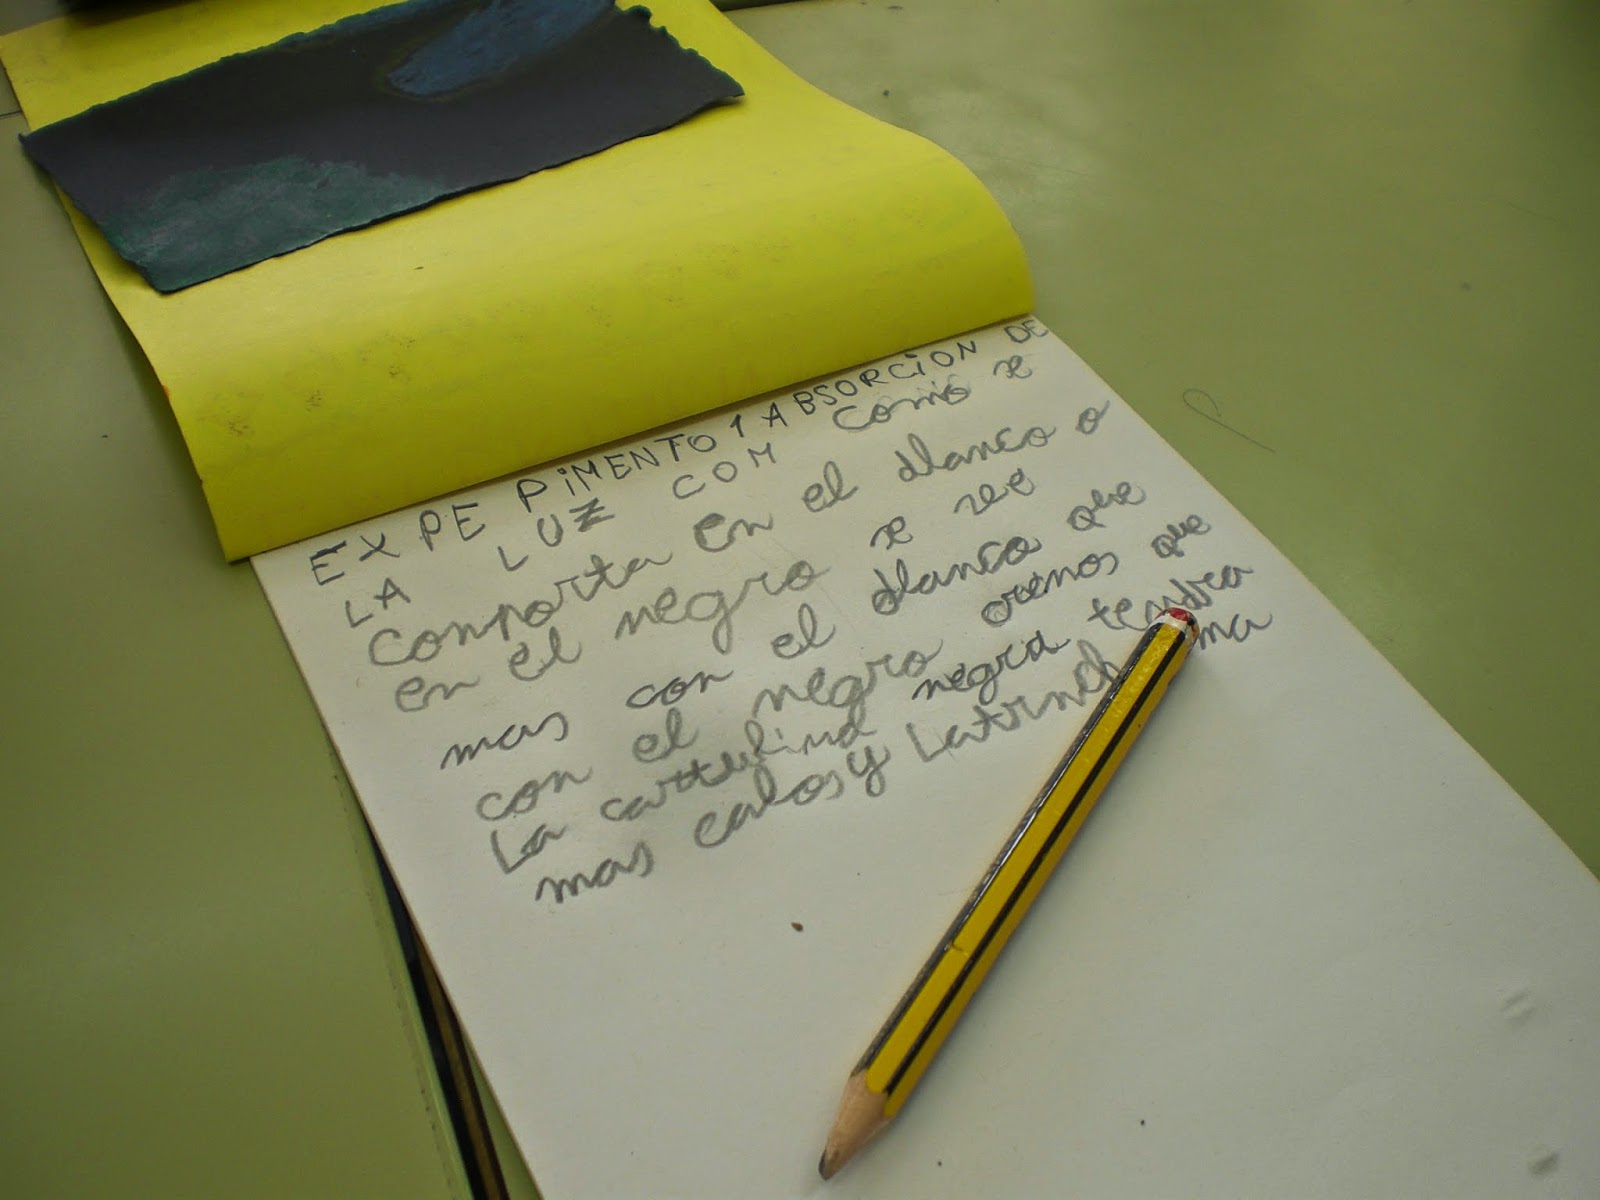 EXPEPIMENTO 1 ABSORCION DE
LA LUZ COM como se
comporta en el blanco o
en el negro se vee
mas con el blanco que
con el negro que
La cartulina negra tendra
mas calos y La ma